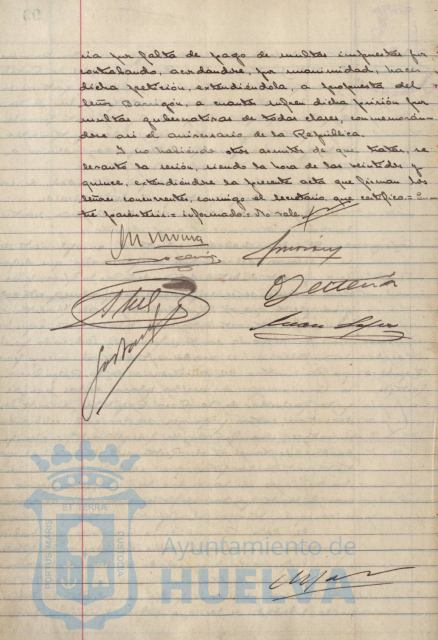 cia por falta de pago de multas impuestas por
contrabando, acordándose, por unanimidad, hacer
dicha petición, extendiéndola, a propuesta del
Señor Barrigón, a cuantos sufren dicha prisión por
multas gubernativas de todas clases, conmemorán-
dose así el aniversario de la República.
Y no habiendo otros asuntos de que tratar, se
levanta la sesión, siendo la hora de las veintidós y
quince, extendiéndose la presente acta que firman los
señores concurrentes, conmigo el secretario que certifico.= En-
tre paréntesis= informado= No vale.
PORTUS MARIS
ET TERRÆ
CUSTODIA
Ayuntamiento de
HUELVA